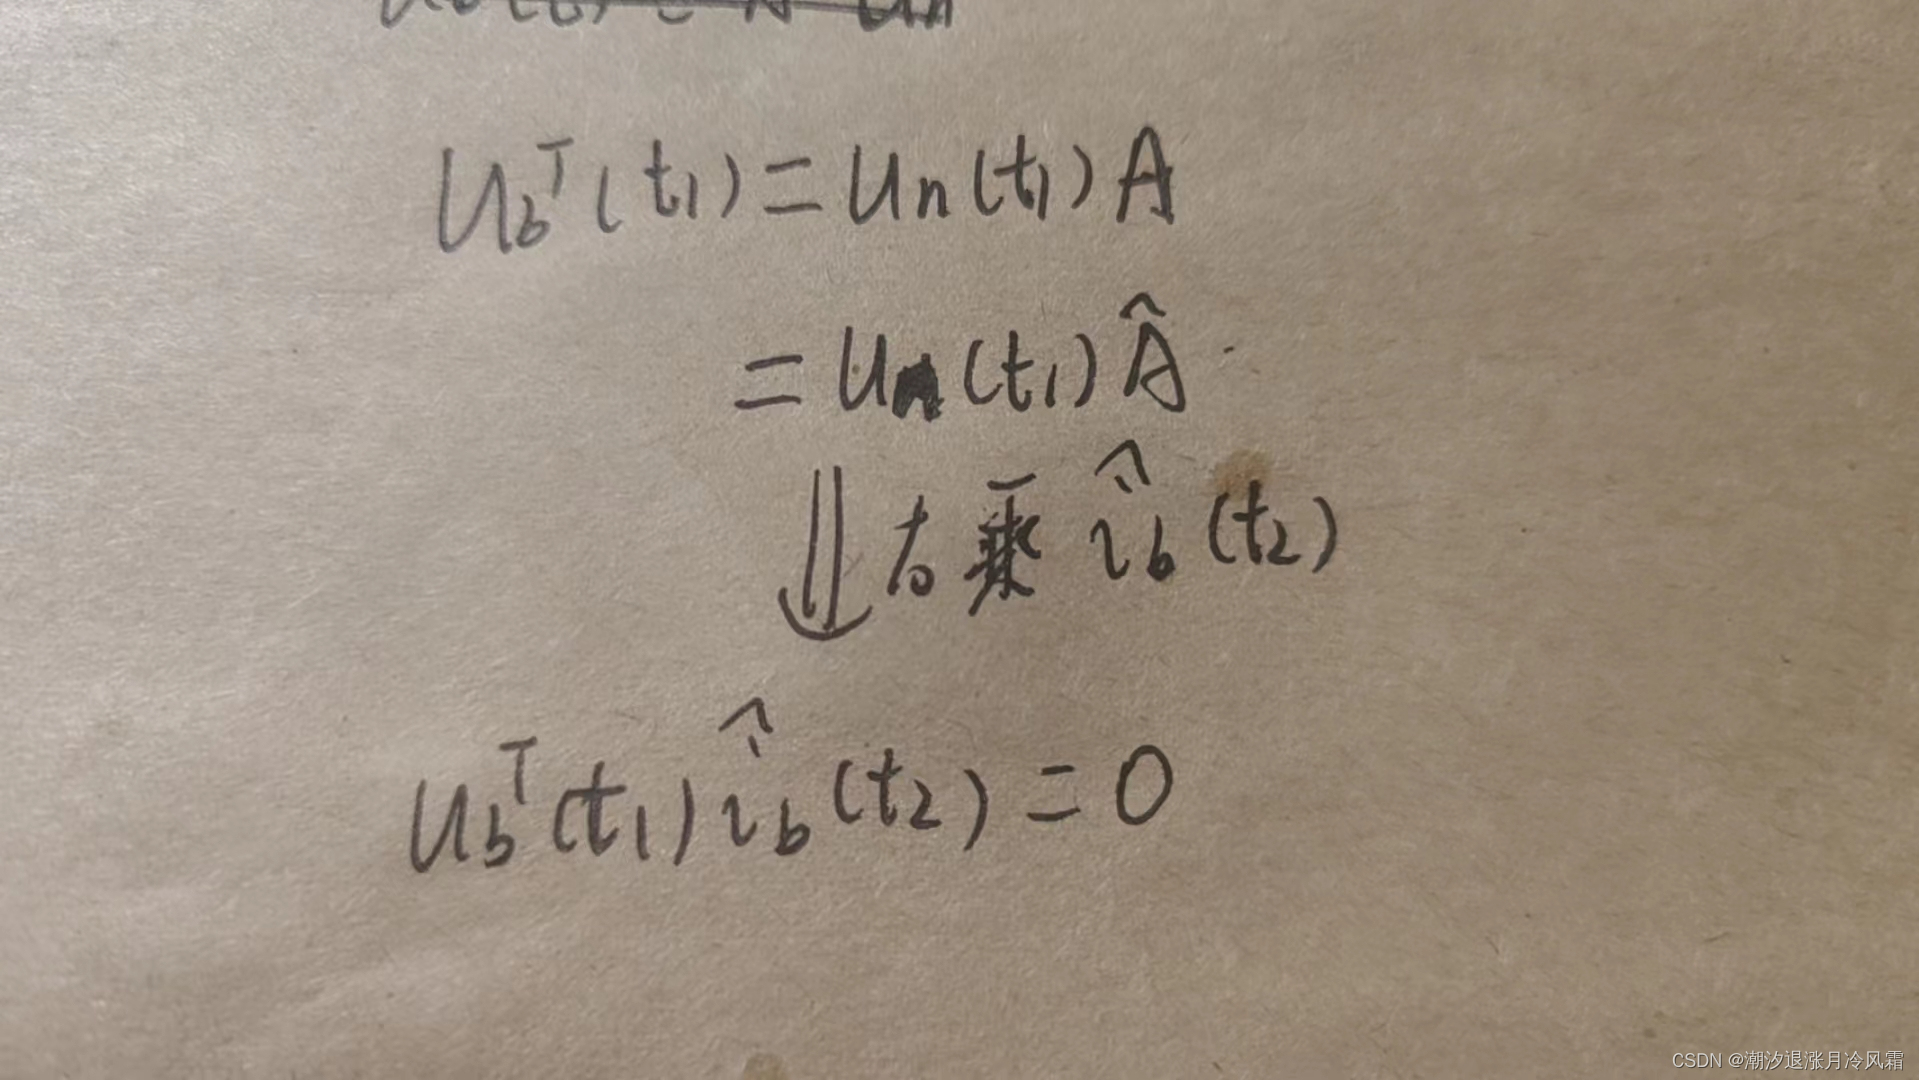 u_b^T(t_1) = u_n(t_1)A
= u_n(t_1)Â
⇓ 右乘 î_b(t_2)
u_b^T(t_1) î_b(t_2) = 0
CSDN @潮汐退涨月冷风霜